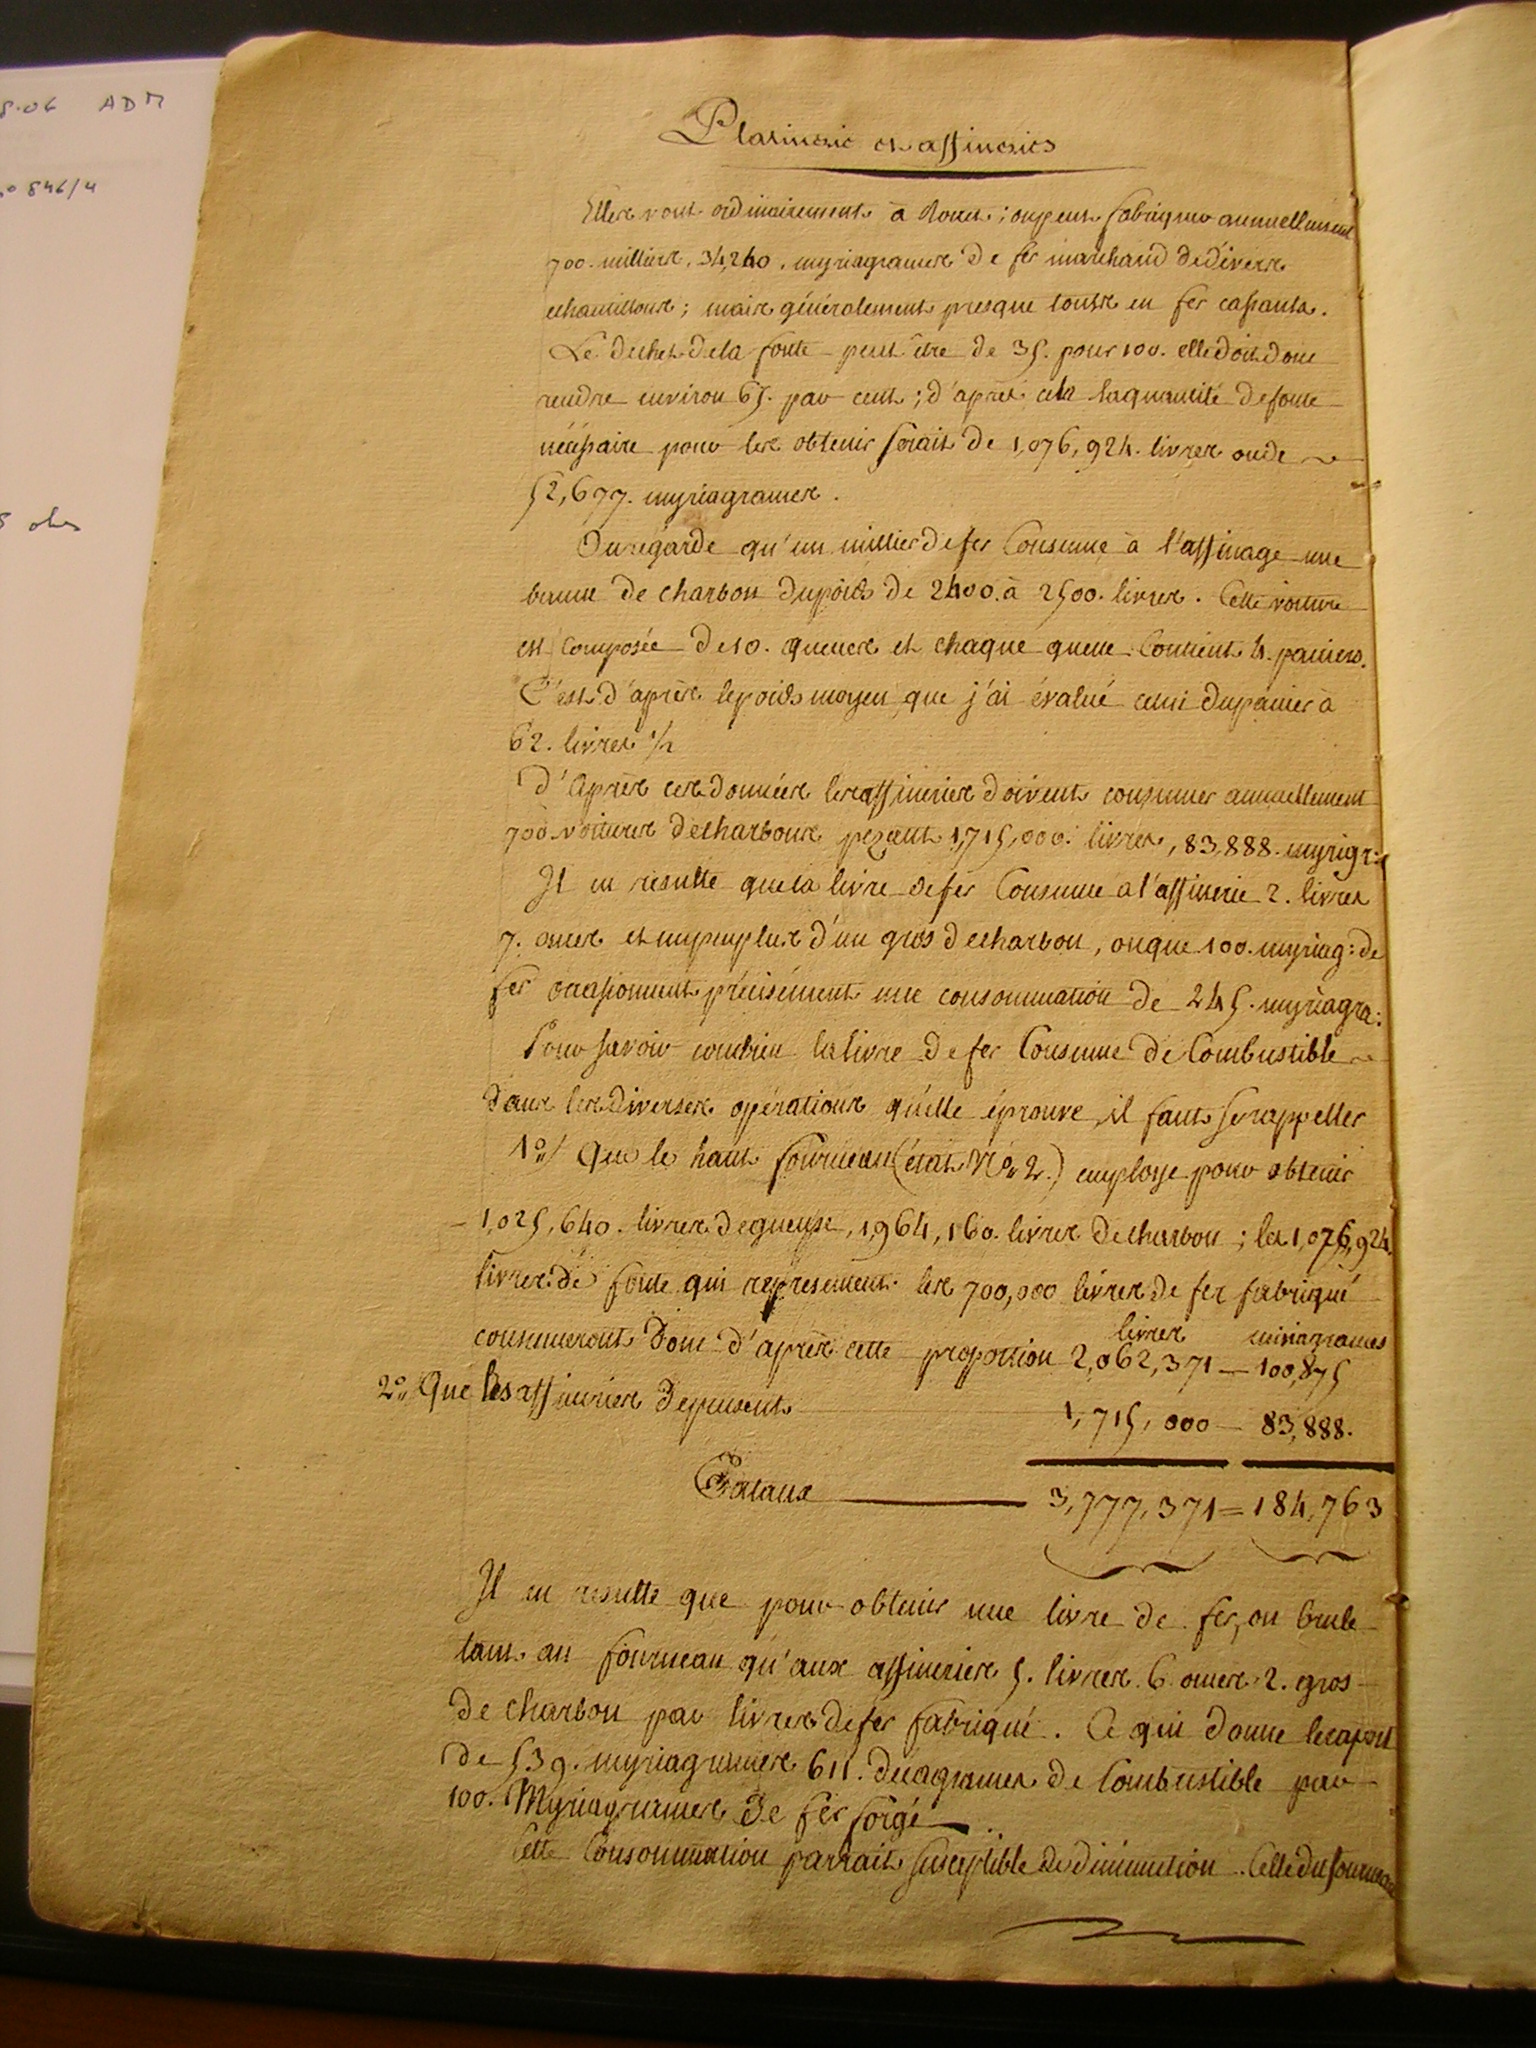 8.06 ADM
846/4
Platinerie et affineries
Elles vont ordinairement à
on peut fabriquer annuellement
700. milliers, 34,240. myriagrames de fer marchand de divers
echantillons; mais généralement presque touts en fer cassants.
Le dechet de la fonte peut être de 35. pour 100. elle doit donc
rendre environ 65. par cent; d'après cela la quantité de fonte
nécessaire pour les obtenir serait de 1,076,924. livres ou de
52,677. myriagrames.
On regarde qu'un millier de fer Consume à l'affinage une
banne de charbon du poids de 2400. à 2500. livres. Cette voiture
est composée de 10. queues et chaque queue Contient 4. paniers.
C'est d'après le poids moyen que j'ai évalué celui du panier à
62. livres 1/2
D'après ces données les affineries doivent consumer annuellement
700 voitures de charbons pezant 1,715,000. livres, 83,888. myriagr:
Il en résulte que la livre de fer Consume a l'affinerie 2. livres
7. onces et un peu plus d'un gros de charbon, ou que 100. myriag: de
fer occasionnent précisément une consommation de 245. myriagra:
Pour savoir combien la livre de fer Consume de Combustible
dans les diverses opérations qu'elle éprouve, il faut se rappeller
1o,,/ Que le haut fourneau (état No,, 2.) employe pour obtenir
1,025,640. livres de gueuse, 1,964,160. livres de charbon; les 1,076,924.
livres de fonte qui représentent les 700,000 livres de fer fabriqué
livres miriagrames
consumeront donc d'après cette proportion 2,062,371 — 100,875
2o,, Que les affineries depensent 1,715,000 — 83,888.
Totaux 3,777,371 = 184,763
Il en résulte que pour obtenir une livre de fer, on brule
tant au fourneau qu'aux affineries 5. livres 6 onces 2. gros
de charbon par livres de fer fabriqué. Ce qui donne le raport
de 539. myriagrames 611. decagrames de Combustible par
100. Myriagrames de fer forgé.
Cette Consommation parrait susceptible de diminution. Celle du fourneau